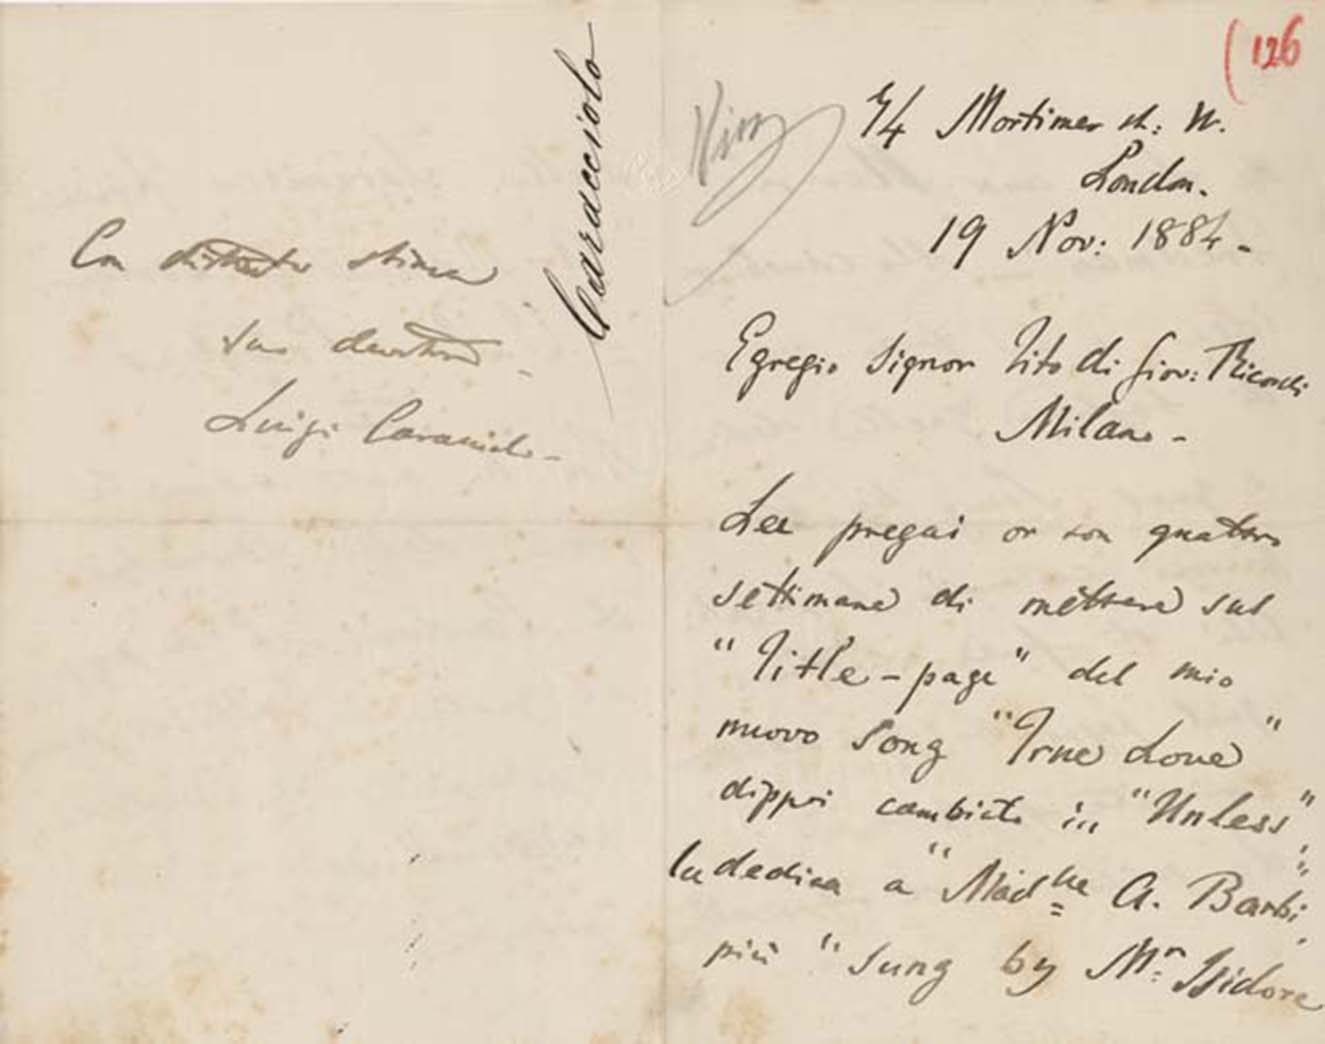 (126
74 Mortimer st: W.
London.
19 Nov: 1884 -
Egregio Signor Tito di Giov: Ricordi
Milano -
Lei pregai or son quattro
settimane di mettere sul
"Title-page" del mio
nuovo Song "True Love"
dippoi cambiato in "Unless",
la dedica a "Madlle A. Barbi",
più "sung by Mr Isidore
Caracciolo
Con distinta stima
suo devotmo -
Luigi Caracciolo -